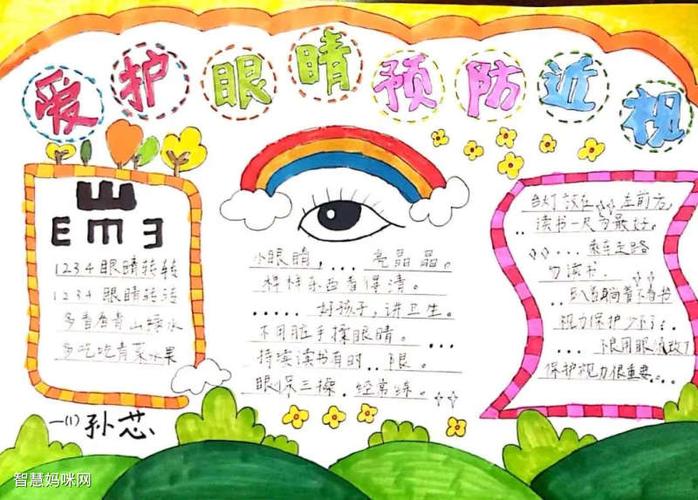 爱护眼睛预防近视
E
E m ョ
1234眼睛转转
1234眼睛转转
多看看青山绿水
多吃吃青菜水果
一(1) 孙芯
小眼睛,...亮晶晶。
样样东西看得清。
......好孩子,讲卫生。
不用脏手揉眼睛。
持续读书有时..限。
眼保三操.经常练。
台灯放在 左前方,
读书一尺为最好。
....乘车走路
勿读书.
视力保护少不了:
保护视力很重要。
智慧妈咪网